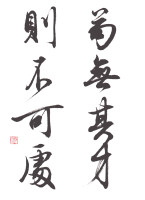 苟無其才
則不可處